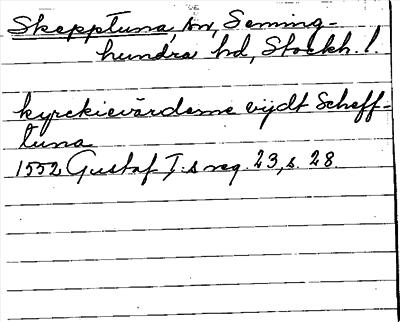 Skepptuna, sn, Seming-
hundra hd, Stockh. l.
kyrckievärdeme vijdt Scheff-
tuna
1552 Gustaf I.s reg. 23, s. 28.